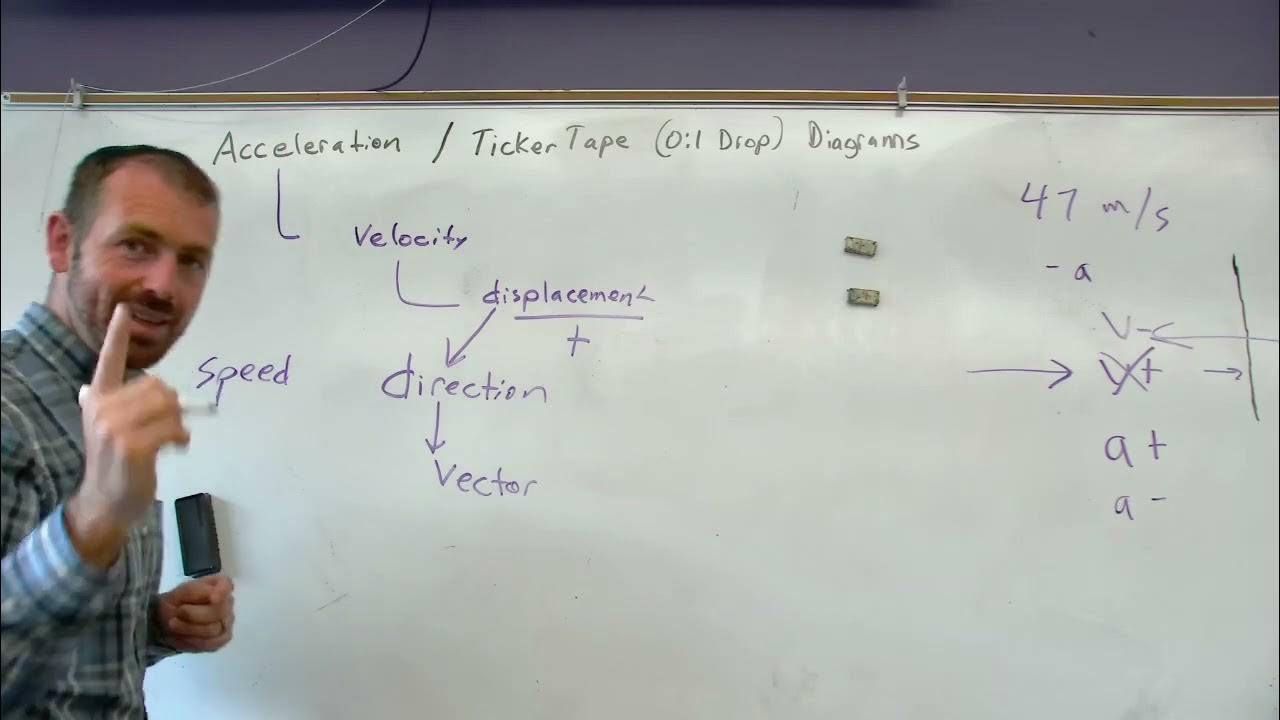 Acceleration / Ticker Tape (0:1 Drop) Diagrams
47 m/s
Velocity
- a
displacement
t
V-
speed
direction
V+
a +
Vector
a -